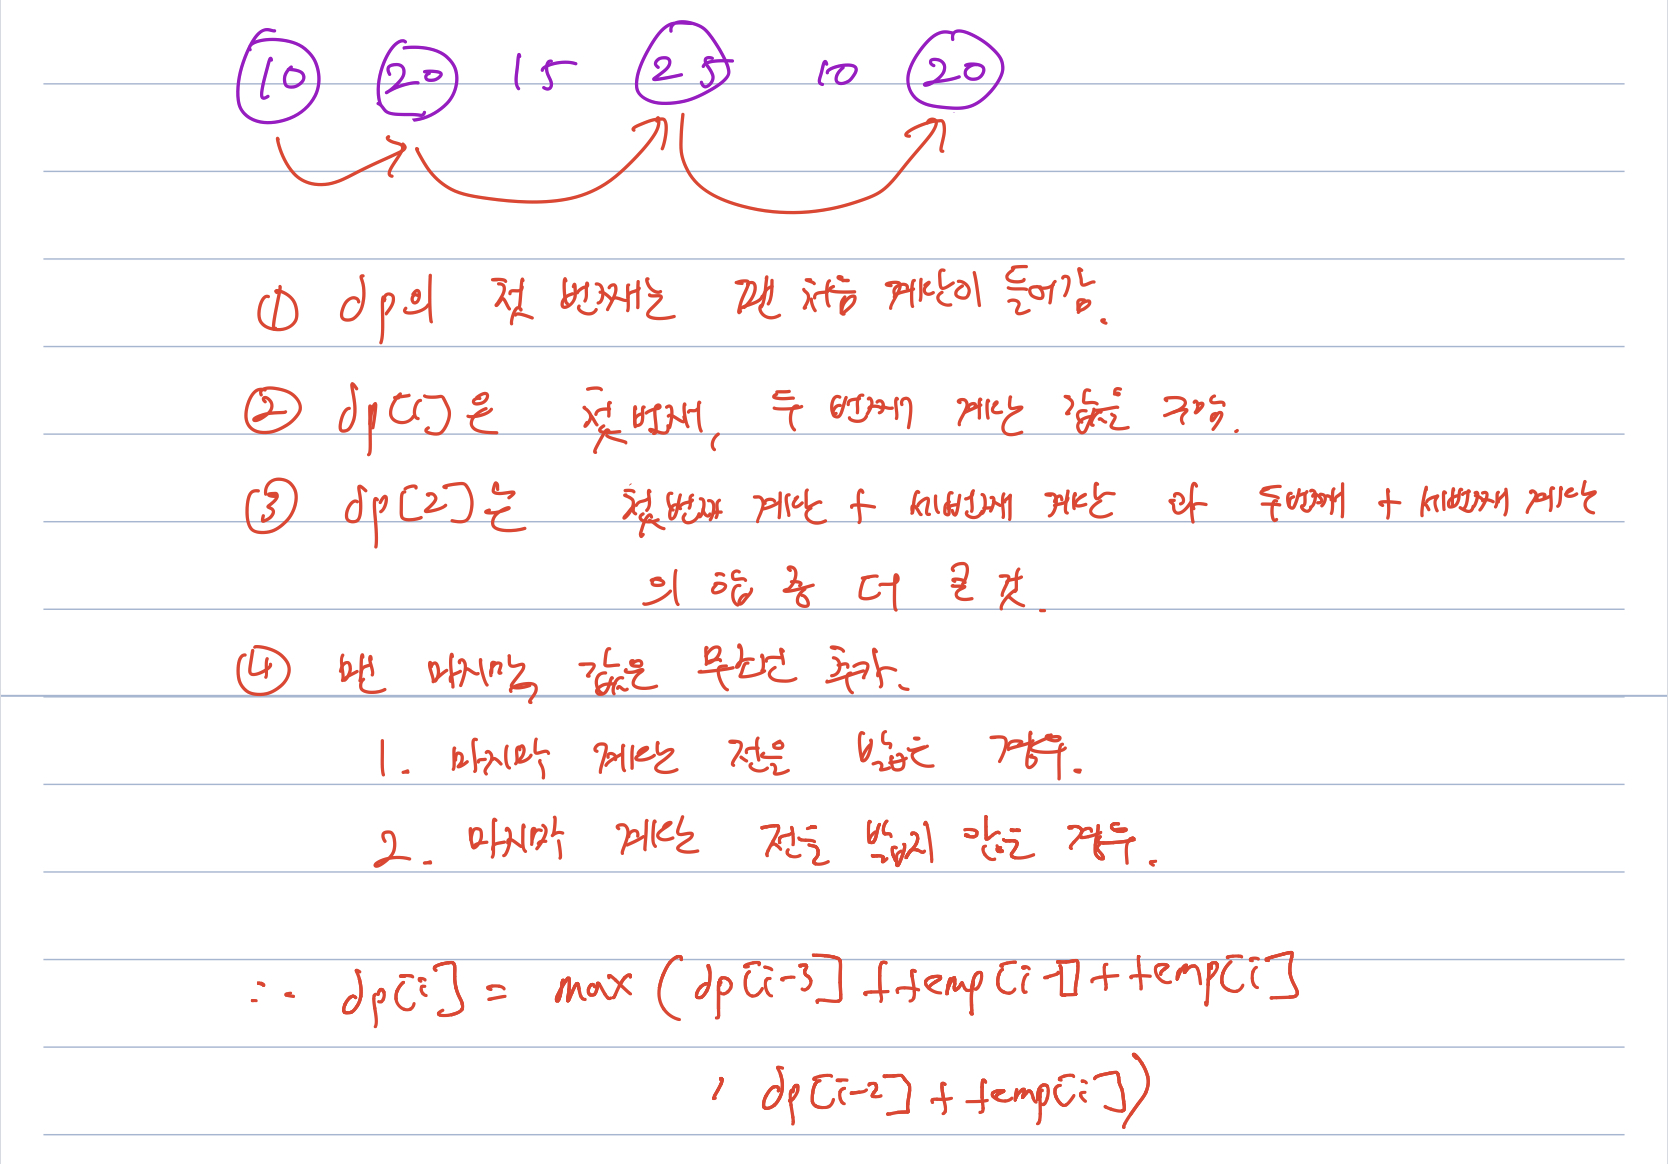 10 20 15 25 10 20
① dp의 첫 번째는 맨 처음 계단이 들어감.
② dp[1]은 첫번째, 두 번째 계단 값을 구함.
③ dp[2]는 첫번째 계단 + 세번째 계단 와 두번째 + 세번째 계단
의 합 중 더 큰 것.
④ 맨 마지막 값은 무조건 추가.
1. 마지막 계단 전을 밟은 경우.
2. 마지막 계단 전을 밟지 않은 경우.
∴ dp[i] = max (dp[i-3] + temp[i-1] + temp[i]
, dp[i-2] + temp[i])